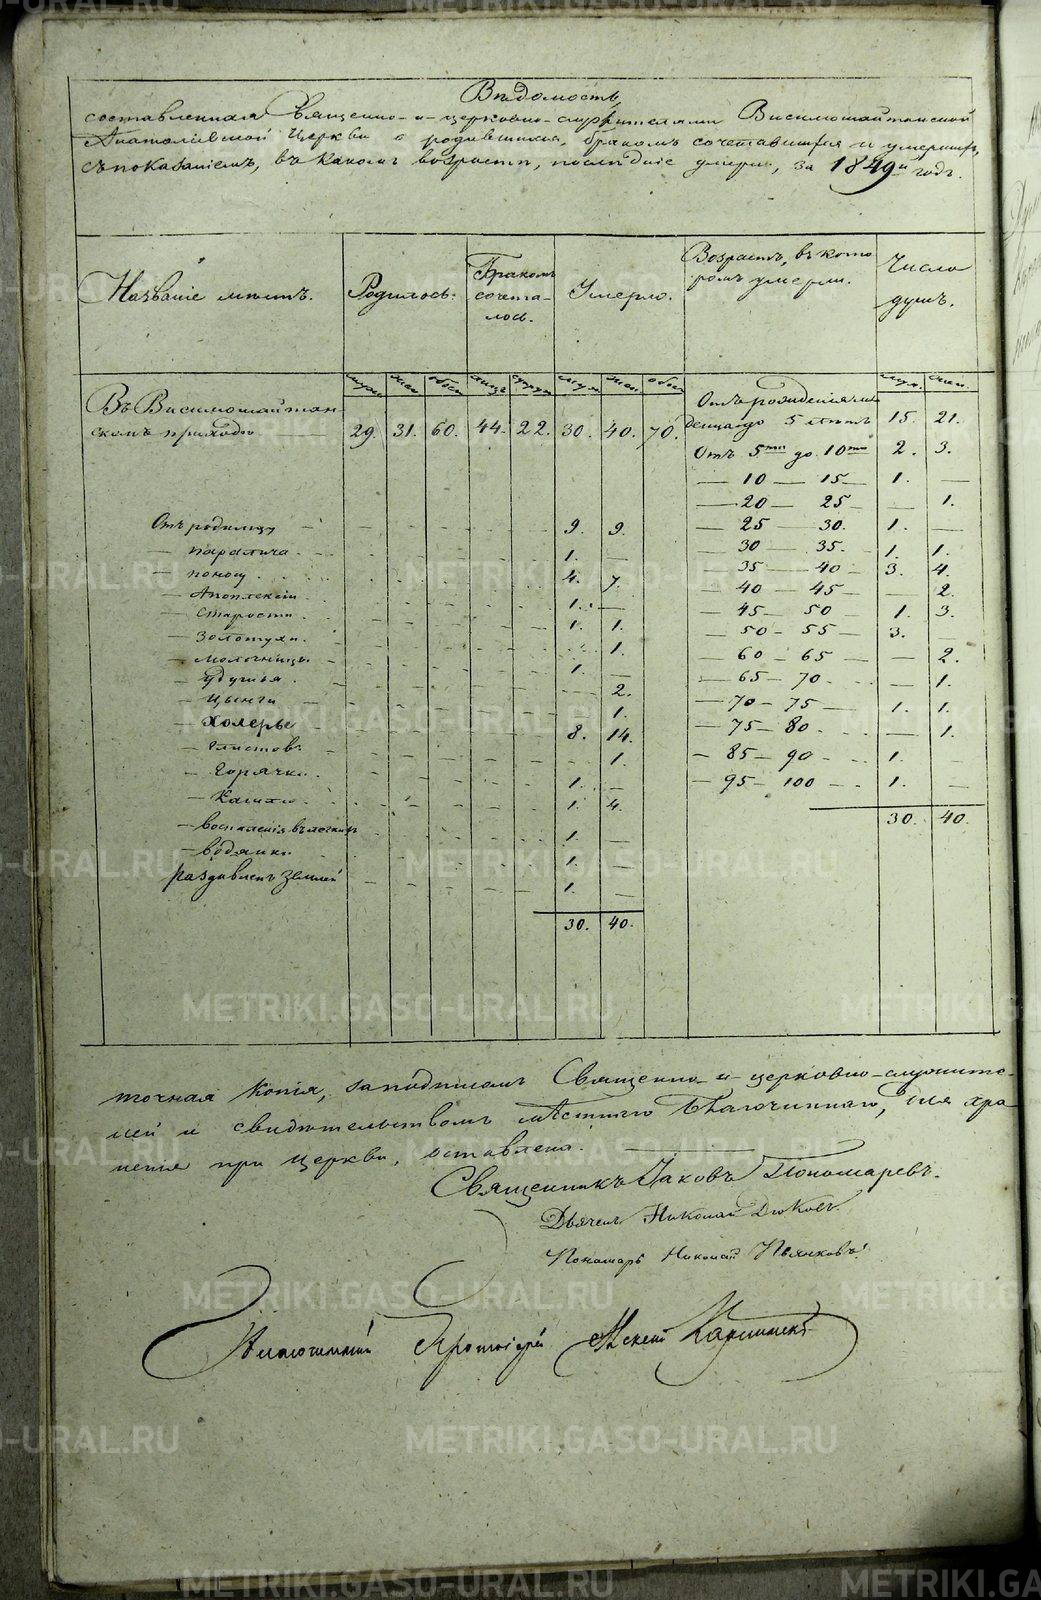 Вѣдомость,
составленная Священно-и-церковно-служителями Висимошайтанской
Анатоліевской Церкви о родившихся, бракомъ сочетавшихся и умершихъ,
съ показаніемъ, въ какомъ возрастѣ, послѣдніе умерли, за 1849й годъ.
Названіе мѣстъ. Родилось. Бракомъ сочета-лось. Умерло. Возрастъ, въ кото-ромъ умерли. Число душъ.
муж. жен. обоег. лицъ супруж. муж. жен. обоег. муж. жен.
Въ Висимошайтан-
скомъ приходѣ 29. 31. 60. 44. 22. 30. 40. 70.
Отъ рожденія мла-
денцевъ до 5 лѣтъ 15. 21.
Отъ 5ти до 10ти 2. 3.
— 10 — 15 — 1. —
— 20 — 25 — — 1.
— 25 — 30. 1. —
30 — 35. 1. 1.
35 — 40 — 3. 4.
40 — 45 — — 2.
— 45 — 50 — 1. 3.
50 — 55 — 3. —
60 — 65 — — 2.
— 65 — 70 — — 1.
— 70 — 75 — 1. 1.
— 75 — 80 — 1.
— 85 — 90 1. —
— 95 — 100 1. —
30. 40.
Отъ родимцу 9. 9.
— паралича 1. —
— поносу 4. 7.
— Апоплексіи 1. —
— Старости 1. 1.
— Золотухи. 1.
— молочницы 1. —
— удушья. 2.
— цынги 1.
— Холеры 8. 14.
— глистовъ 1.
— Горячки. 1. —
— Кашлю 1. 4.
— воспаленія въ легкихъ 1. —
— водянки 1. —
раздавленъ Землей 1. —
30. 40.
точная копія, за подписомъ Священно-и-церковно-служите-
лей и свидѣтельствомъ мѣстнаго Благочиннаго, для хра-
ненія при Церкви, оставлена.
Священникъ Іаковъ Пономаревъ.
Дьячекъ Николай Дюковъ
Пономарь Николай Пьянковъ
Благочинный Протоіерей
METRIKI.GASO-URAL.RU